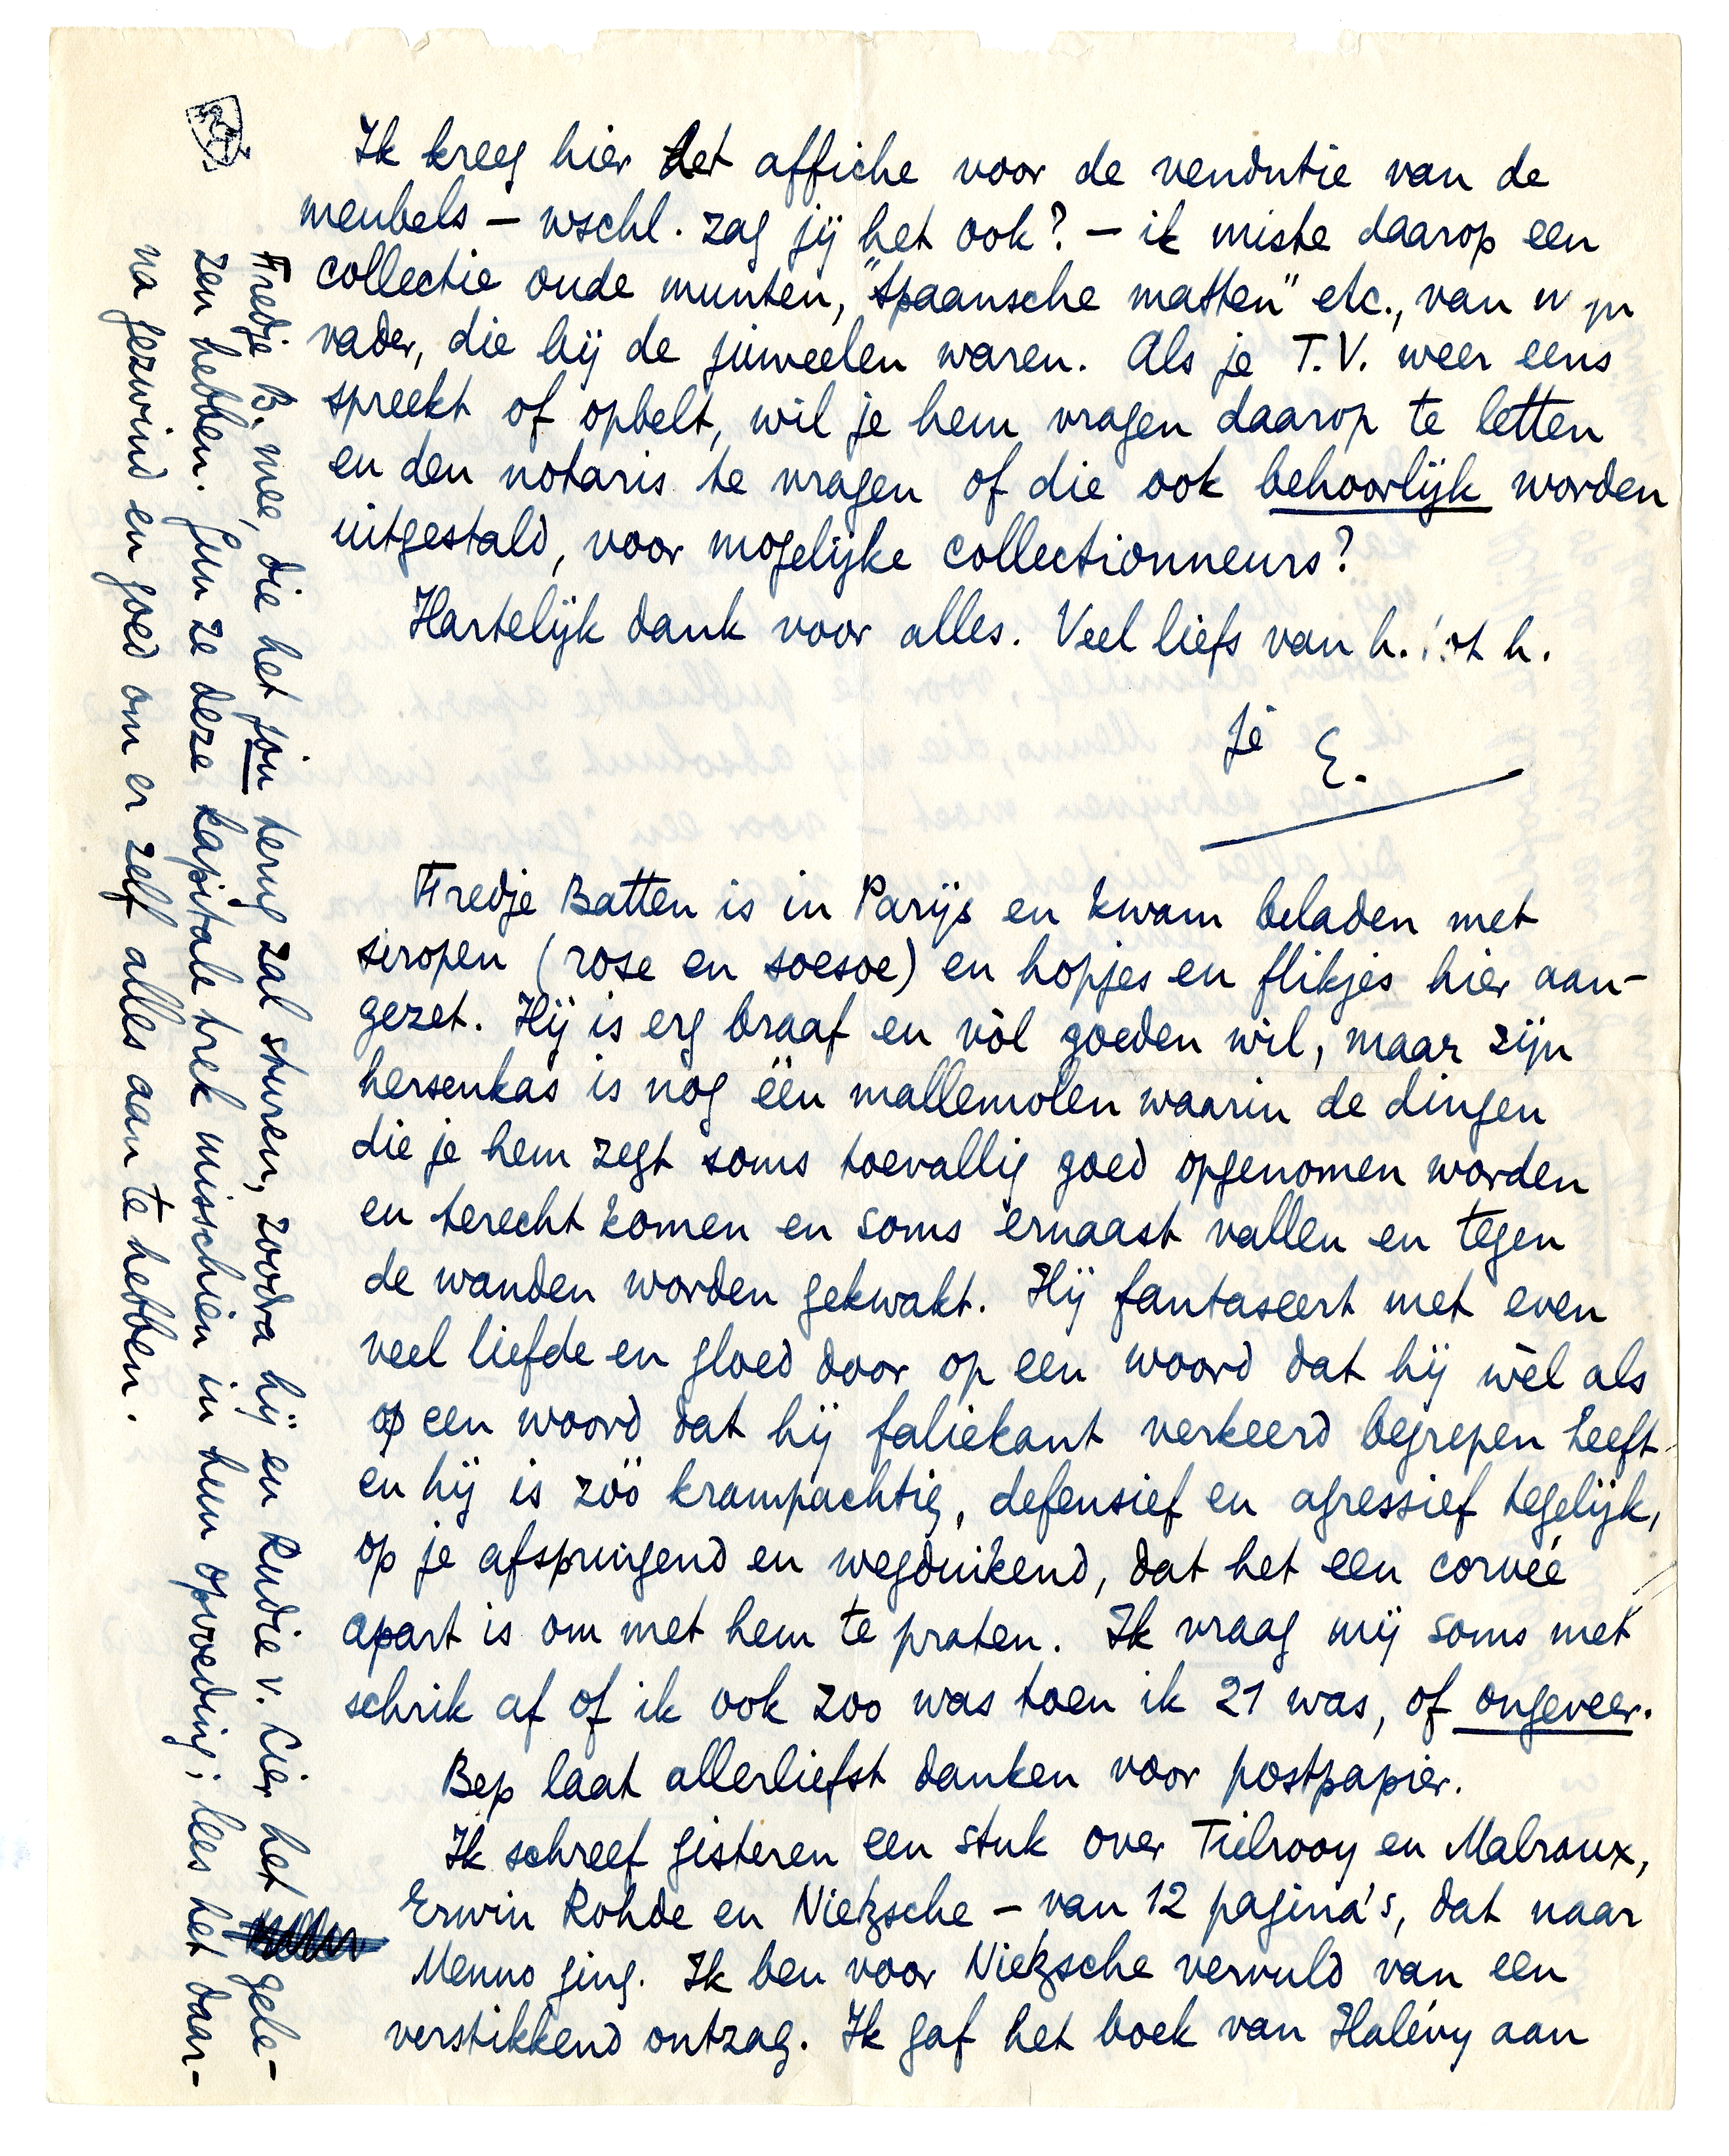 Ik kreeg hier het affiche voor de vendutie van de
meubels – wschl. zag jij het ook? – ik miste daarop een
collectie oude munten, "Spaansche matten" etc., van
vader, die bij de juweelen waren. Als je T.V. weer eens
spreekt of opbelt, wil je hem vragen daarop te letten
en den notaris te vragen of die ook behoorlijk worden
uitgestald, voor mogelijke collectionneurs?
Hartelijk dank voor alles. Veel liefs van h. tot h.
je E.
Fredje Batten is in Parijs en kwam beladen met
siropen (rose en soesoe) en hopjes en flikjes hier aan-
gezet. Hij is erg braaf en vòl goeden wil, maar zijn
hersenkas is nog één mallemolen waarin de dingen
die je hem zegt soms toevallig goed opgenomen worden
en terecht komen en soms ernaast vallen en tegen
de wanden worden gekwakt. Hij fantaseert met even
veel liefde en gloed door op een woord dat hij wèl als
op een woord dat hij faliekant verkeerd begrepen heeft
en hij is zóó krampachtig, defensief en agressief tegelijk,
op je afspringend en wegduikend, dat het een corvée
apart is om met hem te praten. Ik vraag mij soms met
schrik af of ik ook zoo was toen ik 21 was, of ongeveer.
Bep laat allerliefst danken voor postpapier.
Ik schreef gisteren een stuk over Tielrooy en Malraux,
Erwin Rohde en Nietzsche – van 12 pagina's, dat naar
Menno ging. Ik ben voor Nietzsche vervuld van een
verstikkend ontzag. Ik gaf het boek van Halévy aan
Fredje B. mee, die het jou terug zal sturen, zoodra hij en Rudie v. Lier het gele-
zen hebben. Gun ze deze kapitale trek misschien in hun opvoeding; lees het daar-
na gezwind en goed om er zelf alles aan te hebben.